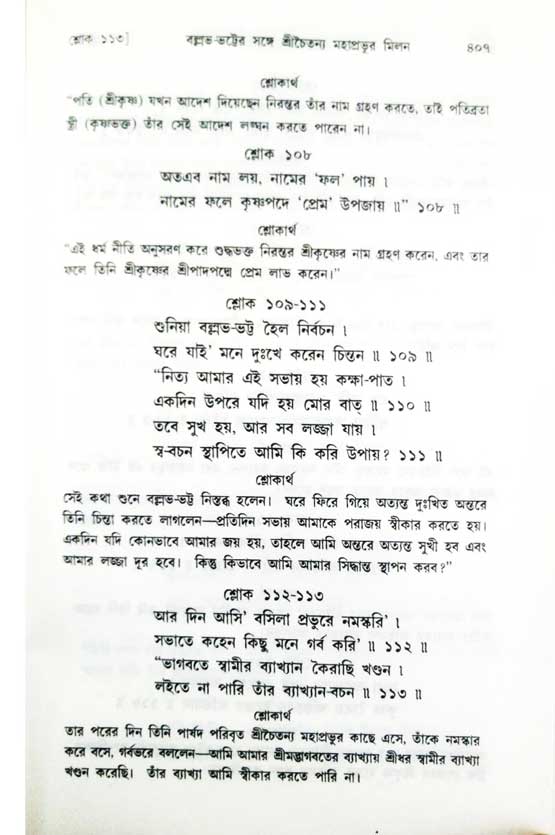 শ্লোক ১১৩] বল্লভ-ভট্টের সঙ্গে শ্রীচৈতন্য মহাপ্রভুর মিলন ৪০৭
শ্লোকার্থ
"পতি (শ্রীকৃষ্ণ) যখন আদেশ দিয়েছেন নিরন্তর তাঁর নাম গ্রহণ করতে, তাই পতিব্রতা
স্ত্রী (কৃষ্ণভক্ত) তাঁর সেই আদেশ লঙ্ঘন করতে পারেন না।
শ্লোক ১০৮
অতএব নাম লয়, নামের 'ফল' পায় ।
নামের ফলে কৃষ্ণপদে 'প্রেম' উপজায় ॥" ১০৮ ॥
শ্লোকার্থ
"এই ধর্ম নীতি অনুসরণ করে শুদ্ধভক্ত নিরন্তর শ্রীকৃষ্ণের নাম গ্রহণ করেন, এবং তার
ফলে তিনি শ্রীকৃষ্ণের শ্রীপাদপদ্মে প্রেম লাভ করেন।"
শ্লোক ১০৯-১১১
শুনিয়া বল্লভ-ভট্ট হৈল নির্বচন ।
ঘরে যাই' মনে দুঃখে করেন চিন্তন ॥ ১০৯ ॥
"নিত্য আমার এই সভায় হয় কক্ষা-পাত ।
একদিন উপরে যদি হয় মোর বাত্ ॥ ১১০ ॥
তবে সুখ হয়, আর সব লজ্জা যায় ।
স্ব-বচন স্থাপিতে আমি কি করি উপায়? ১১১ ॥
শ্লোকার্থ
সেই কথা শুনে বল্লভ-ভট্ট নিস্তব্ধ হলেন। ঘরে ফিরে গিয়ে অত্যন্ত দুঃখিত অন্তরে
তিনি চিন্তা করতে লাগলেন—প্রতিদিন সভায় আমাকে পরাজয় স্বীকার করতে হয়।
একদিন যদি কোনভাবে আমার জয় হয়, তাহলে আমি অন্তরে অত্যন্ত সুখী হব এবং
আমার লজ্জা দূর হবে। কিন্তু কিভাবে আমি আমার সিদ্ধান্ত স্থাপন করব?"
শ্লোক ১১২-১১৩
আর দিন আসি' বসিলা প্রভুরে নমস্করি' ।
সভাতে কহেন কিছু মনে গর্ব করি' ॥ ১১২ ॥
"ভাগবতে স্বামীর ব্যাখ্যান কৈরাছি খণ্ডন ।
লইতে না পারি তাঁর ব্যাখ্যান-বচন ॥ ১১৩ ॥
শ্লোকার্থ
তার পরের দিন তিনি পার্ষদ পরিবৃত শ্রীচৈতন্য মহাপ্রভুর কাছে এসে, তাঁকে নমস্কার
করে বসে, গর্বভরে বললেন—আমি আমার শ্রীমদ্ভাগবতের ব্যাখ্যায় শ্রীধর স্বামীর ব্যাখ্যা
খণ্ডন করেছি। তাঁর ব্যাখ্যা আমি স্বীকার করতে পারি না।